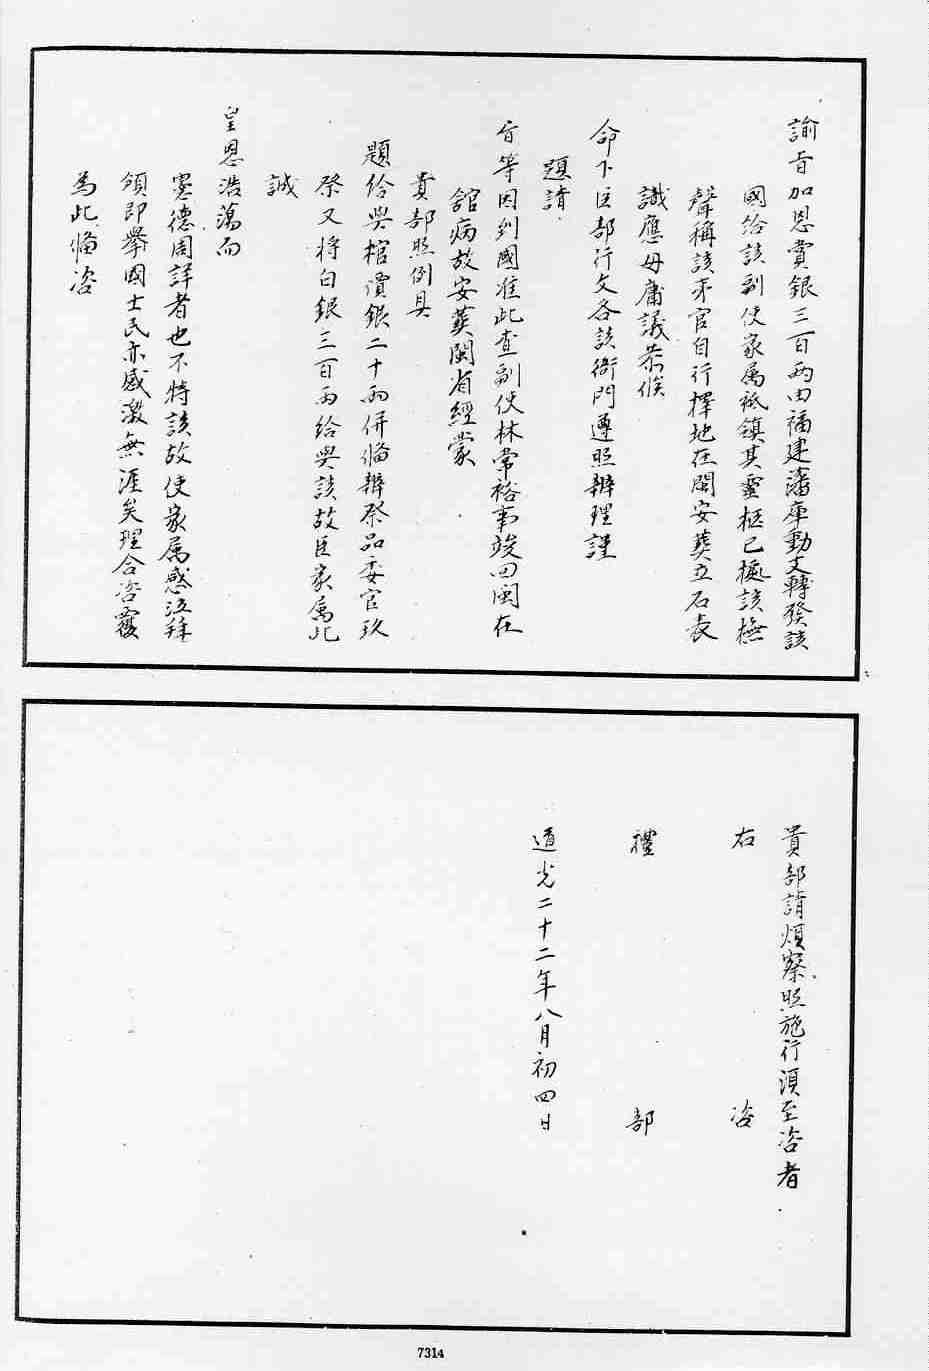 諭旨加恩賞銀三百両由福建藩庫動支轉發該
國給該副使家属祗領其靈柩已據該撫
聲稱該来官自行擇地在閩安葬立石表
識應毋庸議恭候
命下臣部行文各該衙門遵照辦理謹
題請
旨等因到國准此查副使林常裕事竣回閩在
舘病故安葬閩省經蒙
貴部照例具
題給與棺價銀二十両併偹辦祭品委官致
祭又將白銀三百両給與該故臣家属此
誠
皇恩浩蕩而
憲德周詳者也不特該故使家属感泣拜
領即舉國士民亦感激無涯矣理合咨覆
為此偹咨
貴部請煩察照施行湏至咨者
右 咨
禮 部
道光二十二年八月初四日
7314